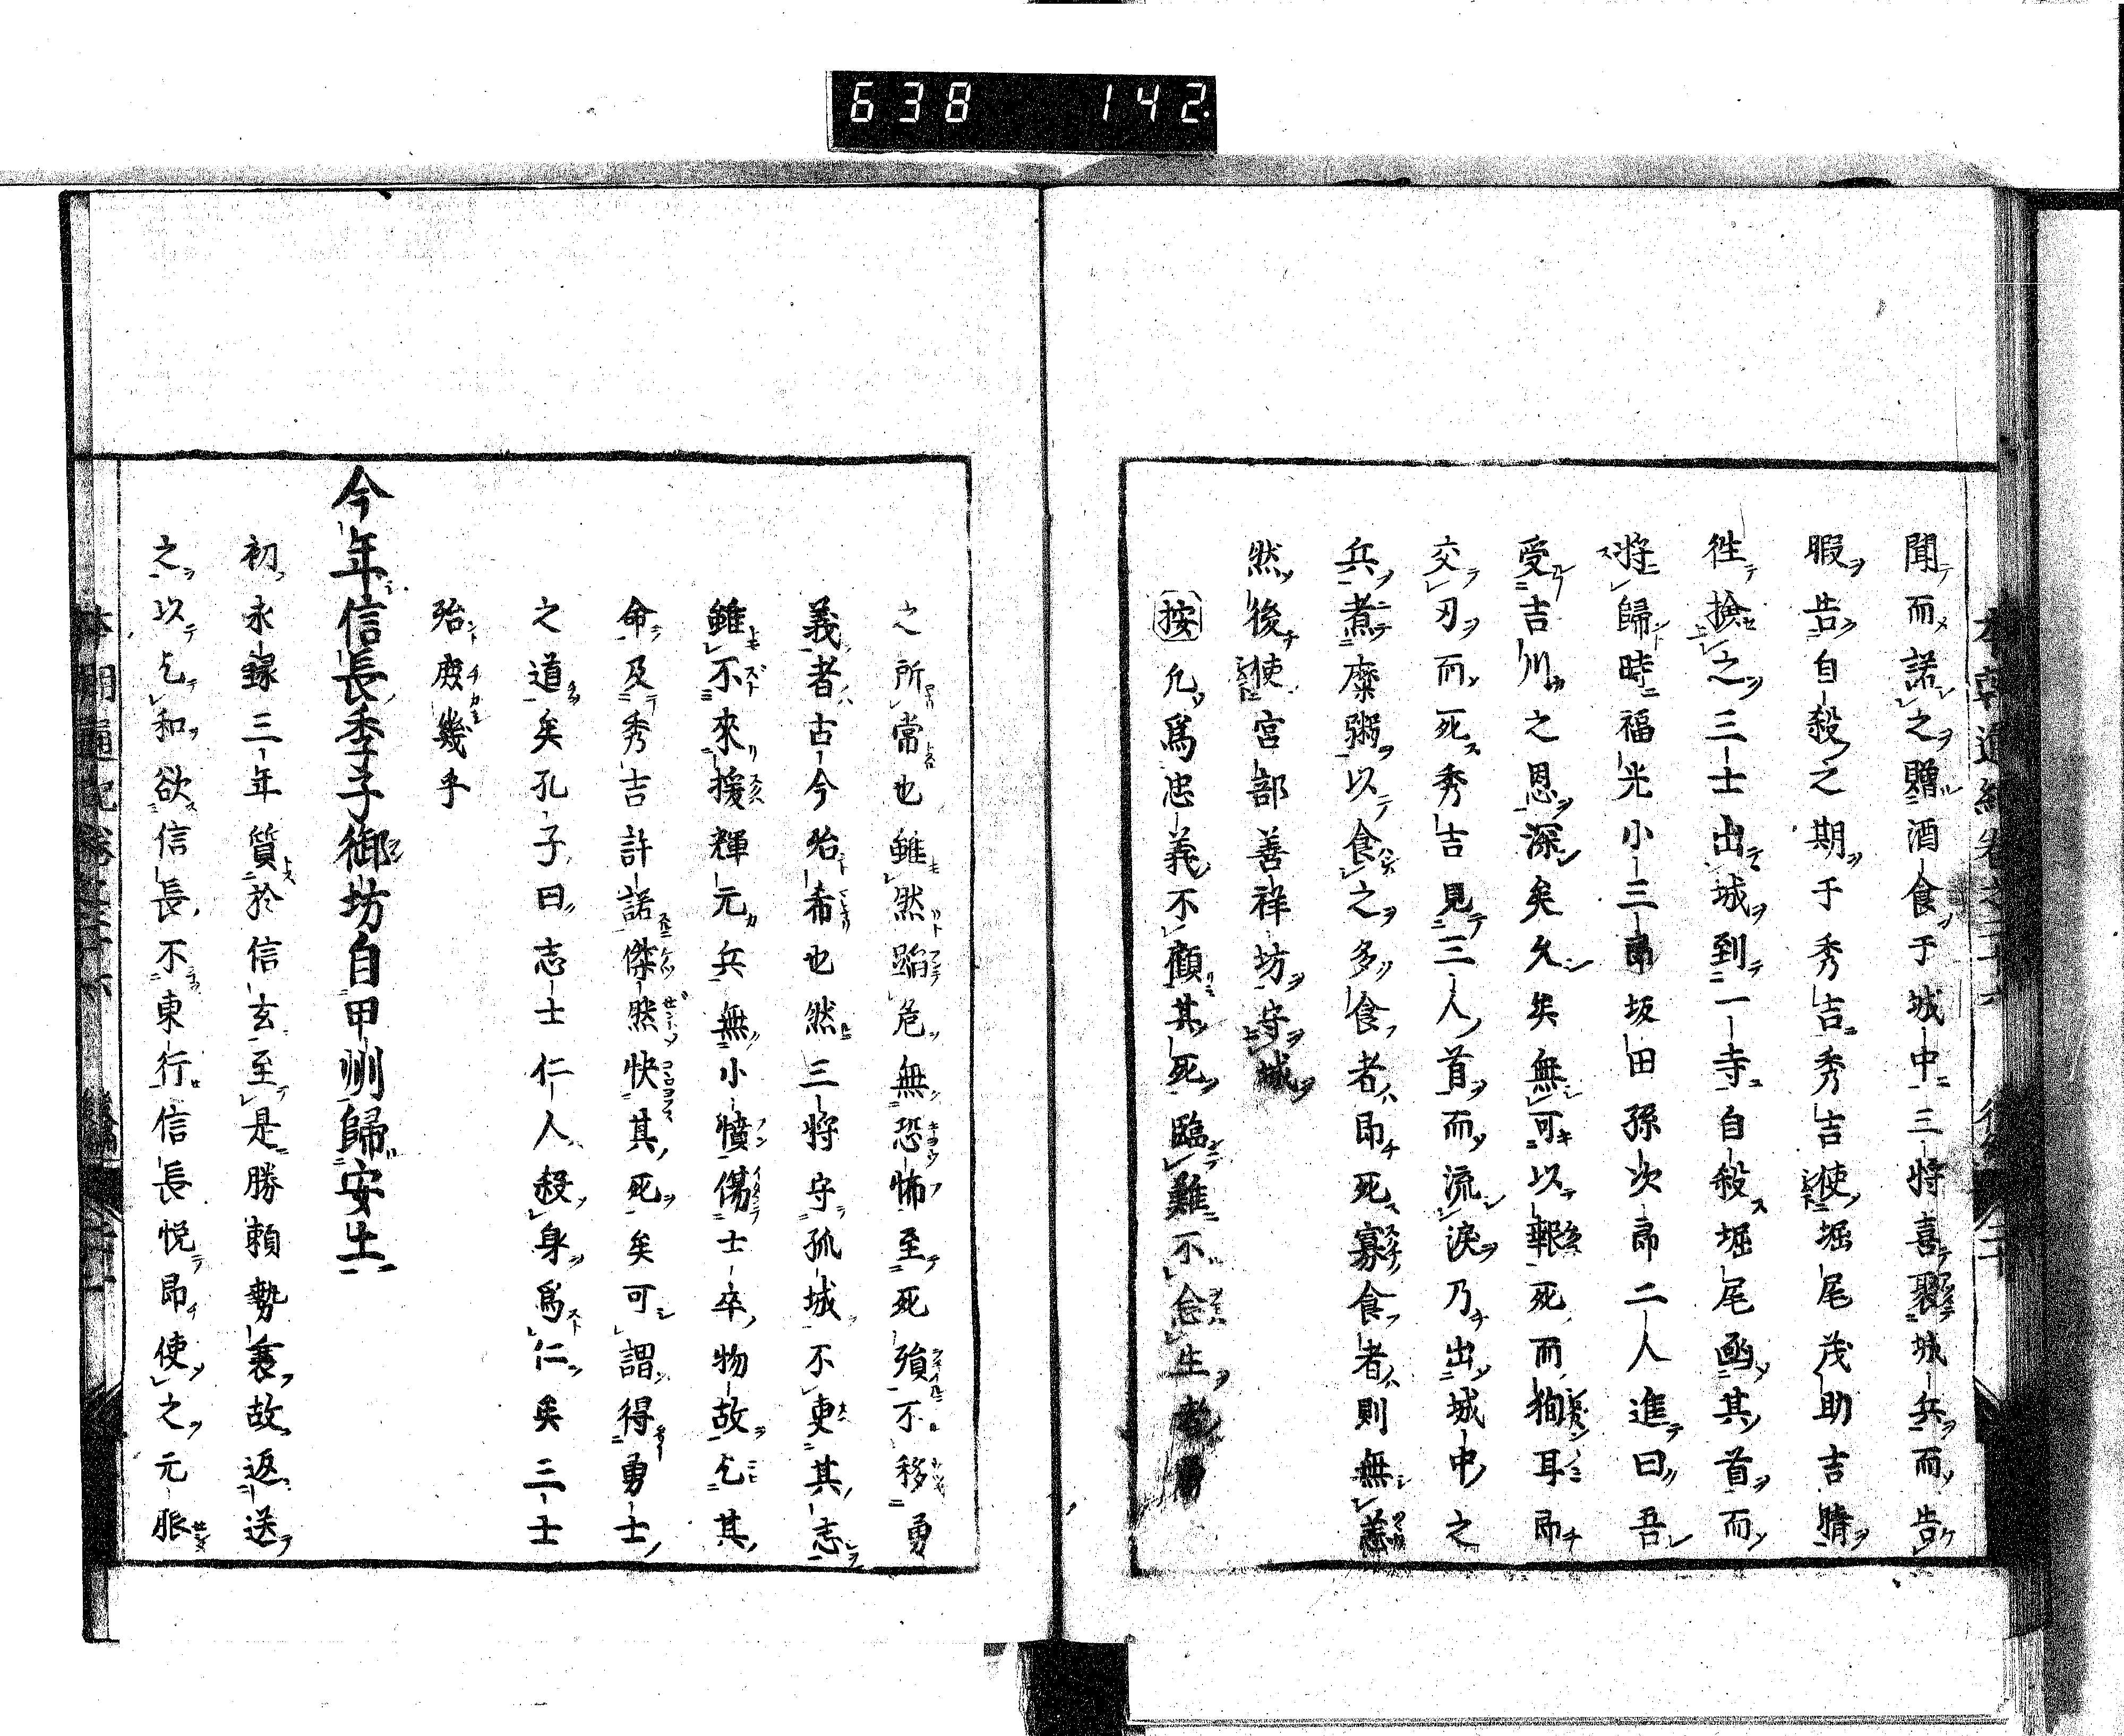 638 142
聞而諾之贈酒食于城中三將喜聚城兵而告
暇告自殺之期于秀吉秀吉使堀尾茂助吉晴
徃撿之三士出城到一寺自殺堀尾函其首而
將歸時福光小三郎坂田孫次郎二人進曰吾
受吉川之恩深矣久矣無可以報死而狥耳即
交刃而死秀吉見三人首而流淚乃出城中之
兵煮糜粥以食之多食者即死寡食者則無恙
然後使宮部善祥坊守城
按凡爲忠義不顧其死臨難不念生者勇
之所常也雖然蹈危無恐怖至死殞不移勇
義者古今殆希也然三將守孤城不更其志
雖不來援輝元兵無小憤傷士卒物故乞其
命及秀吉許諾傑然快其死矣可謂得勇士
之道矣孔子曰志士仁人殺身爲仁矣三士
殆庶幾乎
今年信長季子御坊自甲州歸安土
初永錄三年質於信玄至是勝賴勢衰故返送
之以乞和欲信長不東行信長悅即使之元服